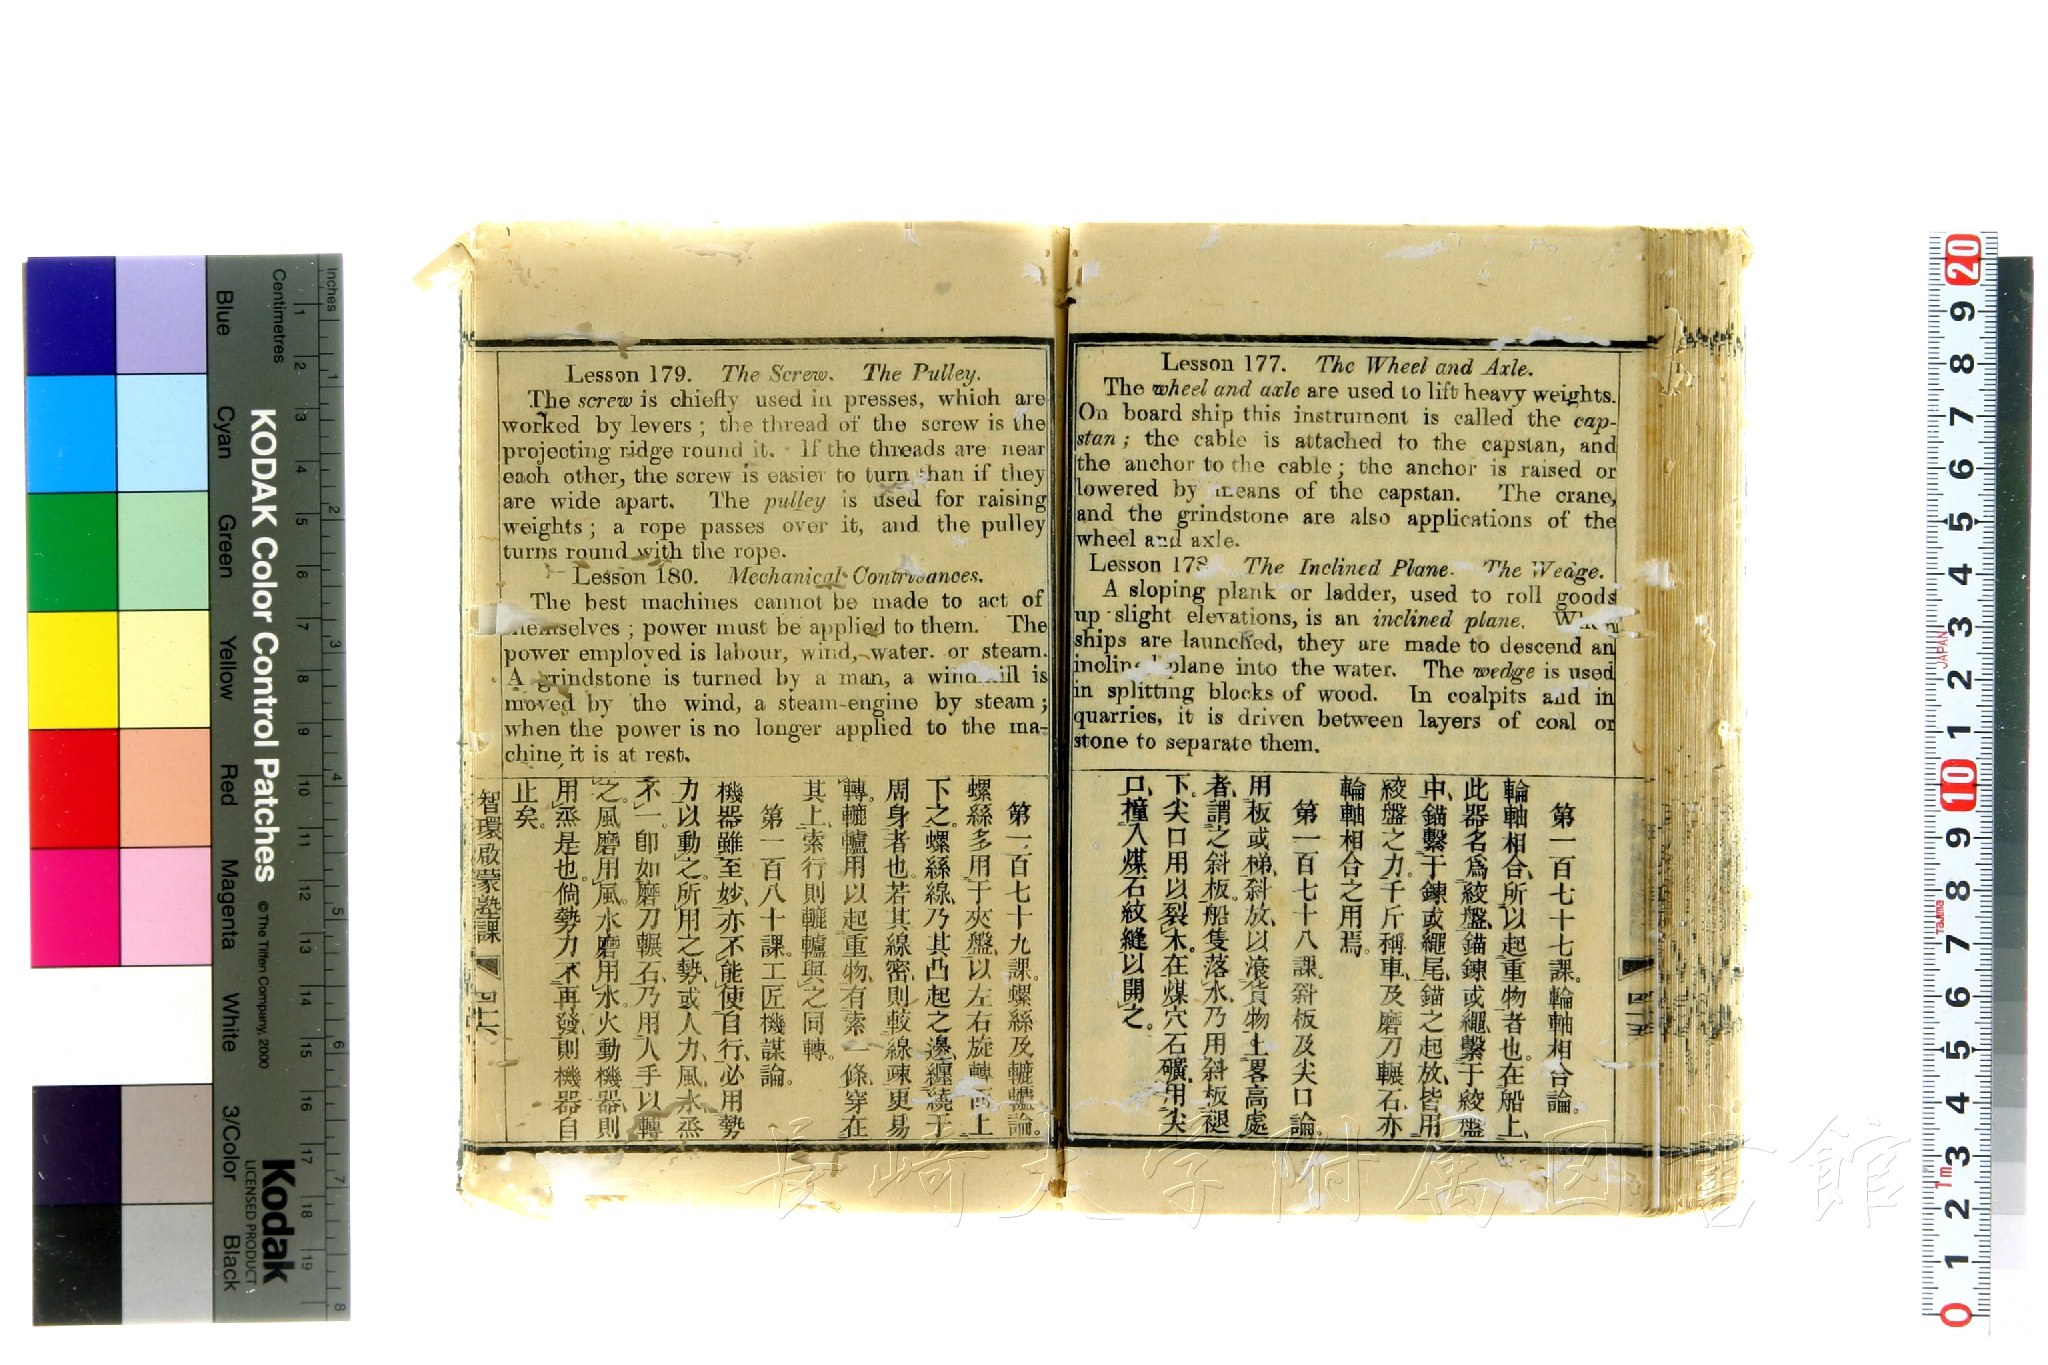 Lesson 177. The Wheel and Axle.
The wheel and axle are used to lift heavy weights.
On board ship this instrument is called the cap-
stan; the cable is attached to the capstan, and
the anchor to the cable; the anchor is raised or
lowered by means of the capstan. The crane,
and the grindstone are also applications of the
wheel and axle.
Lesson 178 The Inclined Plane. The Wedge.
A sloping plank or ladder, used to roll goods
up slight elevations, is an inclined plane. When
ships are launched, they are made to descend an
inclined plane into the water. The wedge is used
in splitting blocks of wood. In coalpits and in
quarries, it is driven between layers of coal or
stone to separate them.
第一百七十七課。輪軸相合論。
輪軸相合、所以起重物者也。在船上、
此器名爲絞盤、錨鍊或繩、繫于絞盤
中、錨繫于鍊或繩尾、錨之起放、皆用
絞盤之力。千斤稱車、及磨刀輾石、亦
輪軸相合之用焉。
第一百七十八課。斜板及尖口論。
用板或梯、斜放、以滾貨物上畧高處
者、謂之斜板。船隻落水、乃用斜板褪
下。尖口用以裂木。在煤穴石礦、用尖
口、撞入煤石紋縫以開之。
四十五
Lesson 179. The Screw. The Pulley.
The screw is chiefly used in presses, which are
worked by levers; the thread of the screw is the
projecting ridge round it. If the threads are near
each other, the screw is easier to turn than if they
are wide apart. The pulley is used for raising
weights; a rope passes over it, and the pulley
turns round with the rope.
Lesson 180. Mechanical Contrivances.
The best machines cannot be made to act of
themselves; power must be applied to them. The
power employed is labour, wind, water. or steam.
A grindstone is turned by a man, a windmill is
moved by the wind, a steam-engine by steam;
when the power is no longer applied to the ma-
chine it is at rest.
第一百七十九課。螺絲及轆轤論。
螺絲多用于夾盤、以左右旋轉而上
下之。螺絲線、乃其凸起之邊、纏繞于
周身者也。若其線密、則較線疎更易
轉。轆轤用以起重物、有索一條、穿在
其上、索行則轆轤與之同轉。
第一百八十課。工匠機謀論。
機器雖至妙、亦不能使自行、必用勢
力以動之。所用之勢、或人力、風、水、烝
不一。卽如磨刀輾石、乃用人手以轉
之。風磨用風。水磨用水。火動機器、則
用烝是也。倘勢力不再發、則機器自
止矣。
智環啟蒙塾課
四十六
長崎大学附属図書館
KODAK Color Control Patches
© The Tiffen Company, 2000
Kodak
LICENSED PRODUCT
Inches
Centimetres
Blue
Cyan
Green
Yellow
Red
Magenta
White
3/Color
Black
1 2 3 4 5 6 7 8 9 10 11 12 13 14 15 16 17 18 19
1 2 3 4 5 6 7 8
20 9 8 7 6 5 4 3 2 1 10 9 8 7 6 5 4 3 2 1 0
JAPAN
Tajima
1m